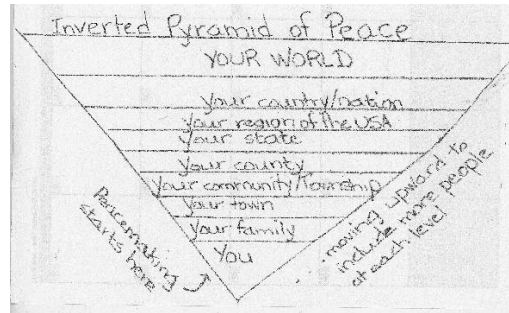 Inverted Pyramid of Peace
YOUR WORLD
your country/nation
your region of the USA
your state
your county
your community/Township
your town
your family
You
Peacemaking
starts here
moving upward to
include more people
at each level